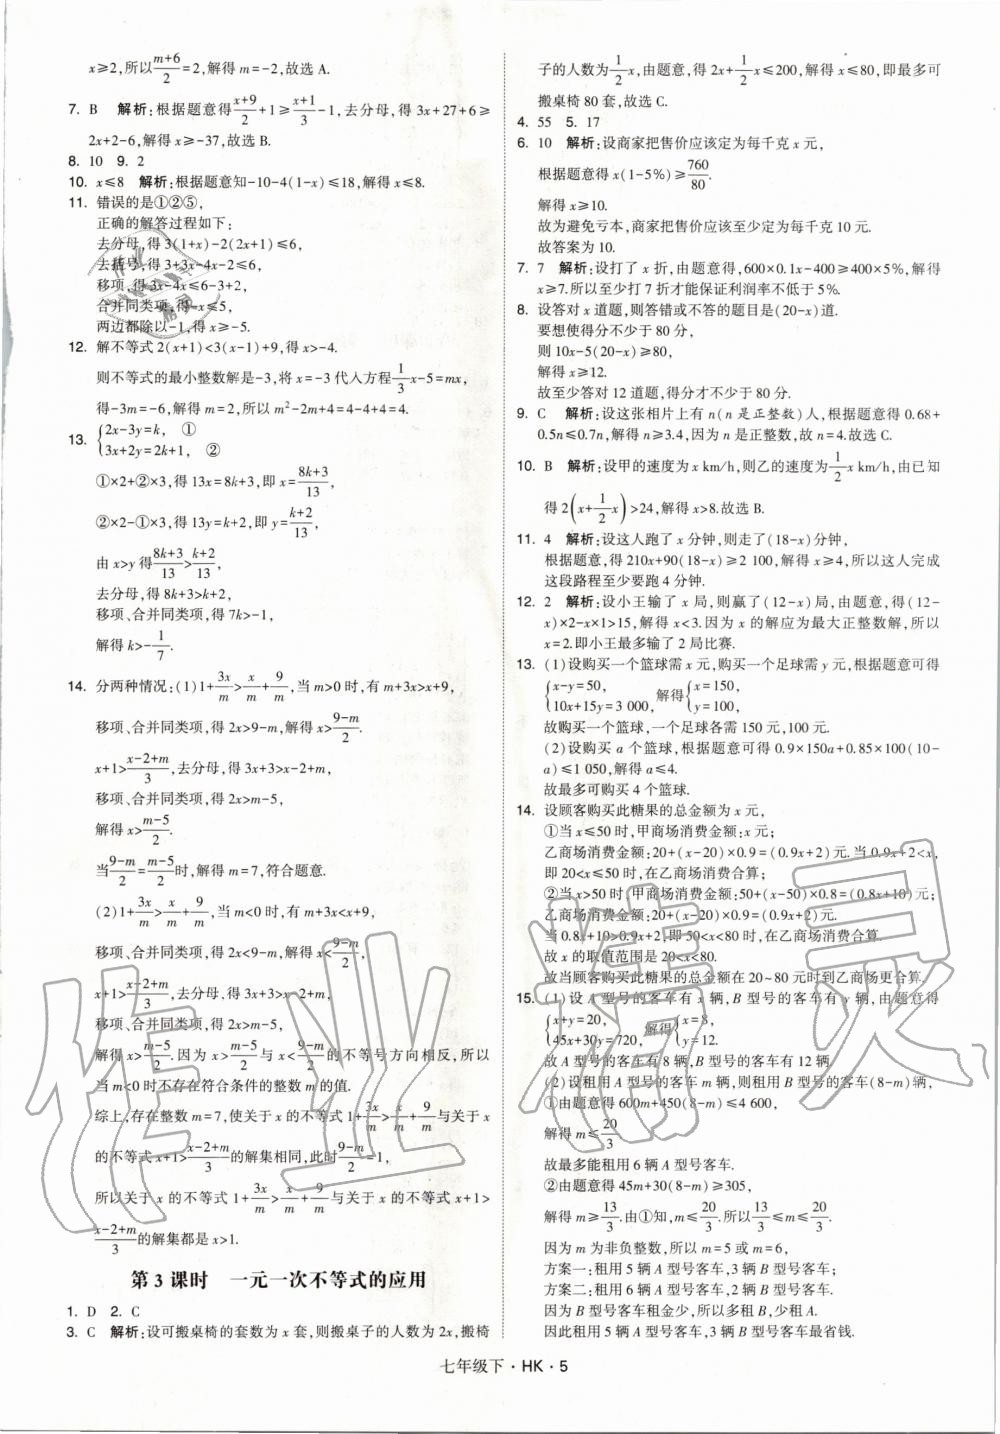 x≥2,所以(m+6)/2=2,解得 m=-2,故选 A.
7. B 解析:根据题意得(x+9)/2+1≥(x+1)/3-1,去分母,得 3x+27+6≥
2x+2-6,解得 x≥-37,故选 B.
8. 10 9. 2
10. x≤8 解析:根据题意知-10-4(1-x)≤18,解得 x≤8.
11. 错误的是①②⑤,
正确的解答过程如下:
去分母,得 3(1+x)-2(2x+1)≤6,
去括号,得 3+3x-4x-2≤6,
移项,得 3x-4x≤6-3+2,
合并同类项,得-x≤5,
两边都除以-1,得 x≥-5.
12. 解不等式 2(x+1)<3(x-1)+9,得 x>-4.
则不等式的最小整数解是-3,将 x=-3 代入方程1/3x-5=mx,
得-3m=-6,解得 m=2,所以 m²-2m+4=4-4+4=4.
13. {2x-3y=k, ①
3x+2y=2k+1, ②
①×2+②×3,得 13x=8k+3,即 x=(8k+3)/13,
②×2-①×3,得 13y=k+2,即 y=(k+2)/13,
由 x>y 得(8k+3)/13>(k+2)/13,
去分母,得 8k+3>k+2,
移项、合并同类项,得 7k>-1,
解得 k>-1/7.
14. 分两种情况:(1)1+3x/m>x/m+9/m,当 m>0 时,有 m+3x>x+9,
移项、合并同类项,得 2x>9-m,解得 x>(9-m)/2.
x+1>(x-2+m)/3,去分母,得 3x+3>x-2+m,
移项、合并同类项,得 2x>m-5,
解得 x>(m-5)/2.
当(9-m)/2=(m-5)/2时,解得 m=7,符合题意.
(2)1+3x/m>x/m+9/m,当 m<0 时,有 m+3x<x+9,
移项、合并同类项,得 2x<9-m,解得 x<(9-m)/2,
x+1>(x-2+m)/3,去分母,得 3x+3>x-2+m,
移项、合并同类项,得 2x>m-5,
解得 x>(m-5)/2.因为 x>(m-5)/2与 x<(9-m)/2的不等号方向相反,所以
当 m<0 时不存在符合条件的整数 m 的值.
综上,存在整数 m=7,使关于 x 的不等式 1+3x/m>x/m+9/m与关于 x
的不等式 x+1>(x-2+m)/3的解集相同,此时(9-m)/2=1,
所以关于 x 的不等式 1+3x/m>x/m+9/m与关于 x 的不等式 x+1>
(x-2+m)/3的解集都是 x>1.
第 3 课时 一元一次不等式的应用
1. D 2. C
3. C 解析:设可搬桌椅的套数为 x 套,则搬桌子的人数为 2x,搬椅
子的人数为1/2x,由题意,得 2x+1/2x≤200,解得 x≤80,即最多可
搬桌椅 80 套,故选 C.
4. 55 5. 17
6. 10 解析:设商家把售价应该定为每千克 x 元,
根据题意得 x(1-5%)≥760/80.
解得 x≥10.
故为避免亏本,商家把售价应该至少定为每千克 10 元.
故答案为 10.
7. 7 解析:设打了 x 折,由题意,得 600×0.1x-400≥400×5%,解得
x≥7.所以至少打 7 折才能保证利润率不低于 5%.
8. 设答对 x 道题,则答错或不答的题目是(20-x)道.
要想使得分不少于 80 分,
则 10x-5(20-x)≥80,
解得 x≥12.
故至少答对 12 道题,得分才不少于 80 分.
9. C 解析:设这张相片上有 n(n 是正整数)人,根据题意得 0.68+
0.5n≤0.7n,解得 n≥3.4,因为 n 是正整数,故 n=4.故选 C.
10. B 解析:设甲的速度为 x km/h,则乙的速度为1/2x km/h,由已知
得 2(x+1/2x)>24,解得 x>8.故选 B.
11. 4 解析:设这人跑了 x 分钟,则走了(18-x)分钟,
根据题意,得 210x+90(18-x)≥2 100,解得 x≥4,所以这人完成
这段路程至少要跑 4 分钟.
12. 2 解析:设小王输了 x 局,则赢了(12-x)局,由题意,得(12-
x)×2-x×1>15,解得 x<3.因为 x 的解应为最大正整数解,所以
x=2.即小王最多输了 2 局比赛.
13. (1)设购买一个篮球需 x 元,购买一个足球需 y 元,根据题意可得
{x-y=50, 解得{x=150,
10x+15y=3 000, y=100,
故购买一个篮球,一个足球各需 150 元,100 元.
(2)设购买 a 个篮球,根据题意可得 0.9×150a+0.85×100(10-
a)≤1 050,解得 a≤4.
故最多可购买 4 个篮球.
14. 设顾客购买此糖果的总金额为 x 元,
①当 x≤50 时,甲商场消费金额:x 元;
乙商场消费金额:20+(x-20)×0.9=(0.9x+2)元.当 0.9x+2<x,
即 20<x≤50 时,在乙商场消费合算;
②当 x>50 时,甲商场消费金额:50+(x-50)×0.8=(0.8x+10)元,
乙商场消费金额:20+(x-20)×0.9=(0.9x+2)元.
当 0.8x+10>0.9x+2,即 50<x<80 时,在乙商场消费合算.
故 x 的取值范围是 20<x<80.
故当顾客购买此糖果的总金额在 20~80 元时到乙商场更合算.
15. (1)设 A 型号的客车有 x 辆,B 型号的客车有 y 辆,由题意得
{x+y=20, 解得{x=8,
45x+30y=720, y=12.
故 A 型号的客车有 8 辆,B 型号的客车有 12 辆.
(2)设租用 A 型号的客车 m 辆,则租用 B 型号的客车(8-m)辆,
①由题意得 600m+450(8-m)≤4 600,
解得 m≤20/3.
故最多能租用 6 辆 A 型号客车.
②由题意得 45m+30(8-m)≥305,
解得 m≥13/3.由①知,m≤20/3.所以13/3≤m≤20/3.
因为 m 为非负整数,所以 m=5 或 m=6.
方案一:租用 5 辆 A 型号客车,3 辆 B 型号客车;
方案二:租用 6 辆 A 型号客车,2 辆 B 型号客车.
因为 B 型号客车租金少,所以多租 B,少租 A.
因此租用 5 辆 A 型号客车,3 辆 B 型号客车最省钱.
七年级下·HK·5
作业精灵